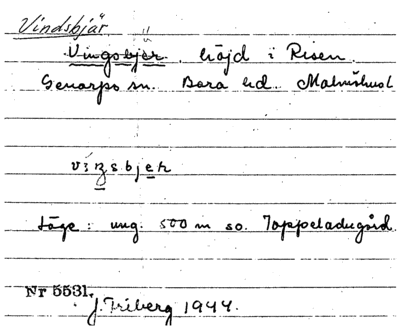 Vindsbjär
Vingsbjer höjd i Risen.
Genarps sn. Bara hd. Malmöhus l
Läge: ung. 500 m so. Toppeladugård.
Nr 5531.
J. Friberg 1944.